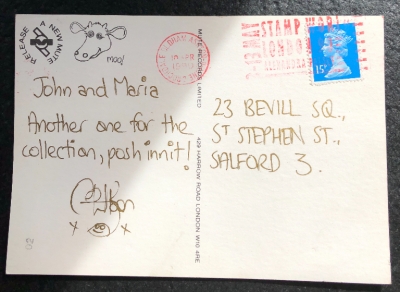 RELEASE A NEW MUTE
moo!
John and Maria
Another one for the
collection, posh innit!
x x
MUTE RECORDS LIMITED
429 HARROW ROAD LONDON W10 4RE
STAMP WORLD
LONDON
15
23 BEVILL SQ.,
ST STEPHEN ST.,
SALFORD 3.